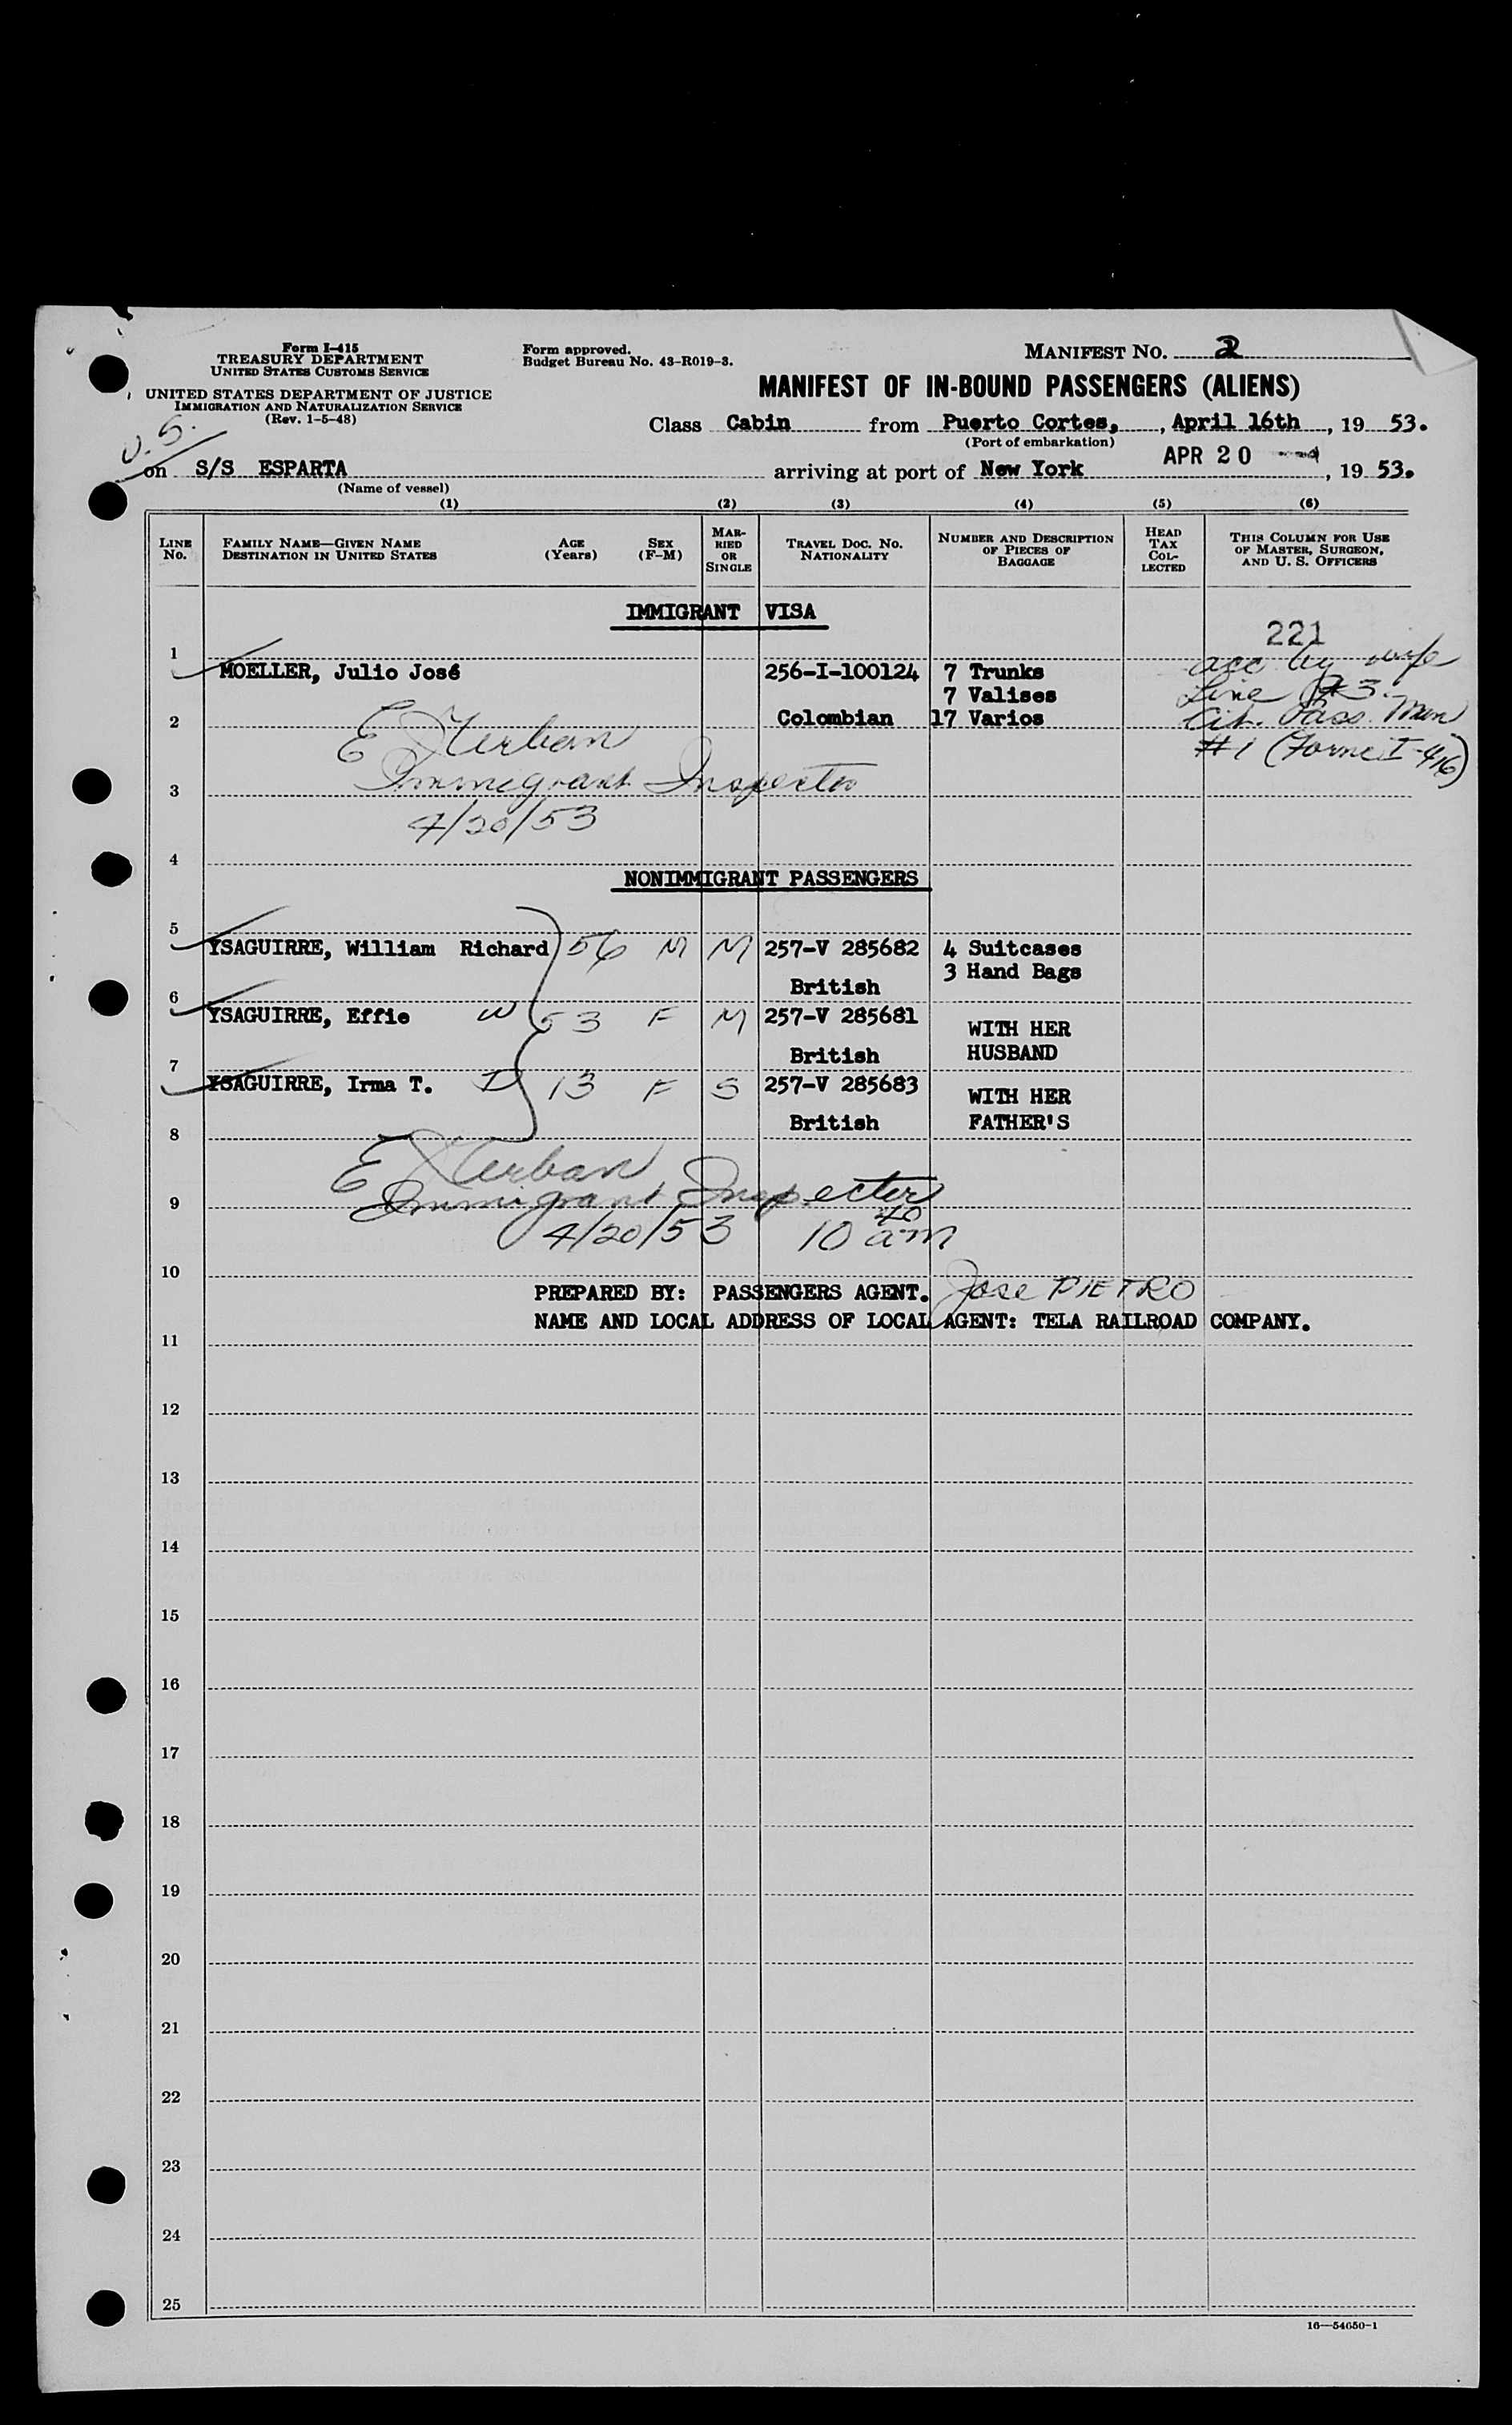 Form I-415
TREASURY DEPARTMENT
UNITED STATES CUSTOMS SERVICE
UNITED STATES DEPARTMENT OF JUSTICE
IMMIGRATION AND NATURALIZATION SERVICE
(Rev. 1-5-48)
Form approved.
Budget Bureau No. 43-R019-3.
MANIFEST NO. 2
MANIFEST OF IN-BOUND PASSENGERS (ALIENS)
Class Cabin from Puerto Cortes, , April 16th, 19 53.
(Port of embarkation)
on S/S ESPARTA arriving at port of New York APR 20, 19 53.
(Name of vessel)
(1) (2) (3) (4) (5) (6)
LINE No. FAMILY NAME—GIVEN NAME DESTINATION IN UNITED STATES AGE (Years) SEX (F-M) MARRIED OR SINGLE TRAVEL DOC. NO. NATIONALITY NUMBER AND DESCRIPTION OF PIECES OF BAGGAGE HEAD TAX COLLECTED THIS COLUMN FOR USE OF MASTER, SURGEON, AND U. S. OFFICERS
IMMIGRANT VISA
221
1
MOELLER, Julio José 256-I-100124 7 Trunks acc by wife
7 Valises Line 3.
2 Colombian 17 Varios Cit. Pass. Man
#1 (Form I-416)
Immigrant Inspector
3
4/20/53
4
NONIMMIGRANT PASSENGERS
5
YSAGUIRRE, William Richard 56 M M 257-V 285682 4 Suitcases
3 Hand Bags
British
6
YSAGUIRRE, Effie W 53 F M 257-V 285681 WITH HER
British HUSBAND
7
YSAGUIRRE, Irma T. D 13 F S 257-V 285683 WITH HER
British FATHER'S
8
9 Immigrant Inspector
4/20/53 10 40 am
10
PREPARED BY: PASSENGERS AGENT. Jose PIETRO
NAME AND LOCAL ADDRESS OF LOCAL AGENT: TELA RAILROAD COMPANY.
11
12
13
14
15
16
17
18
19
20
21
22
23
24
25
16—54650-1